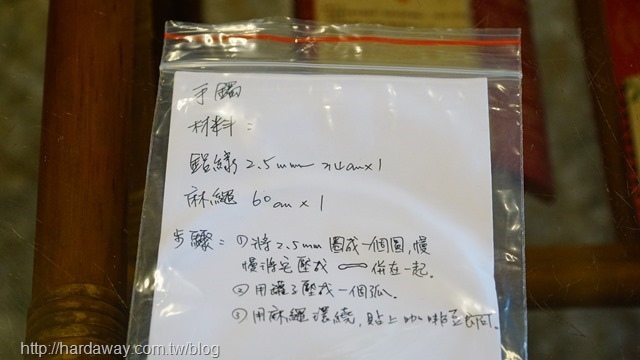 手鐲
材料：
鋁線 2.5mm x 1
麻繩 60cm x 1
步驟：①將2.5mm 圈成一個圓，慢
慢將它壓成 併在一起。
②用罐子壓成一個弧。
③用麻繩環繞，貼上咖啡豆即可。
http://hardaway.com.tw/blog